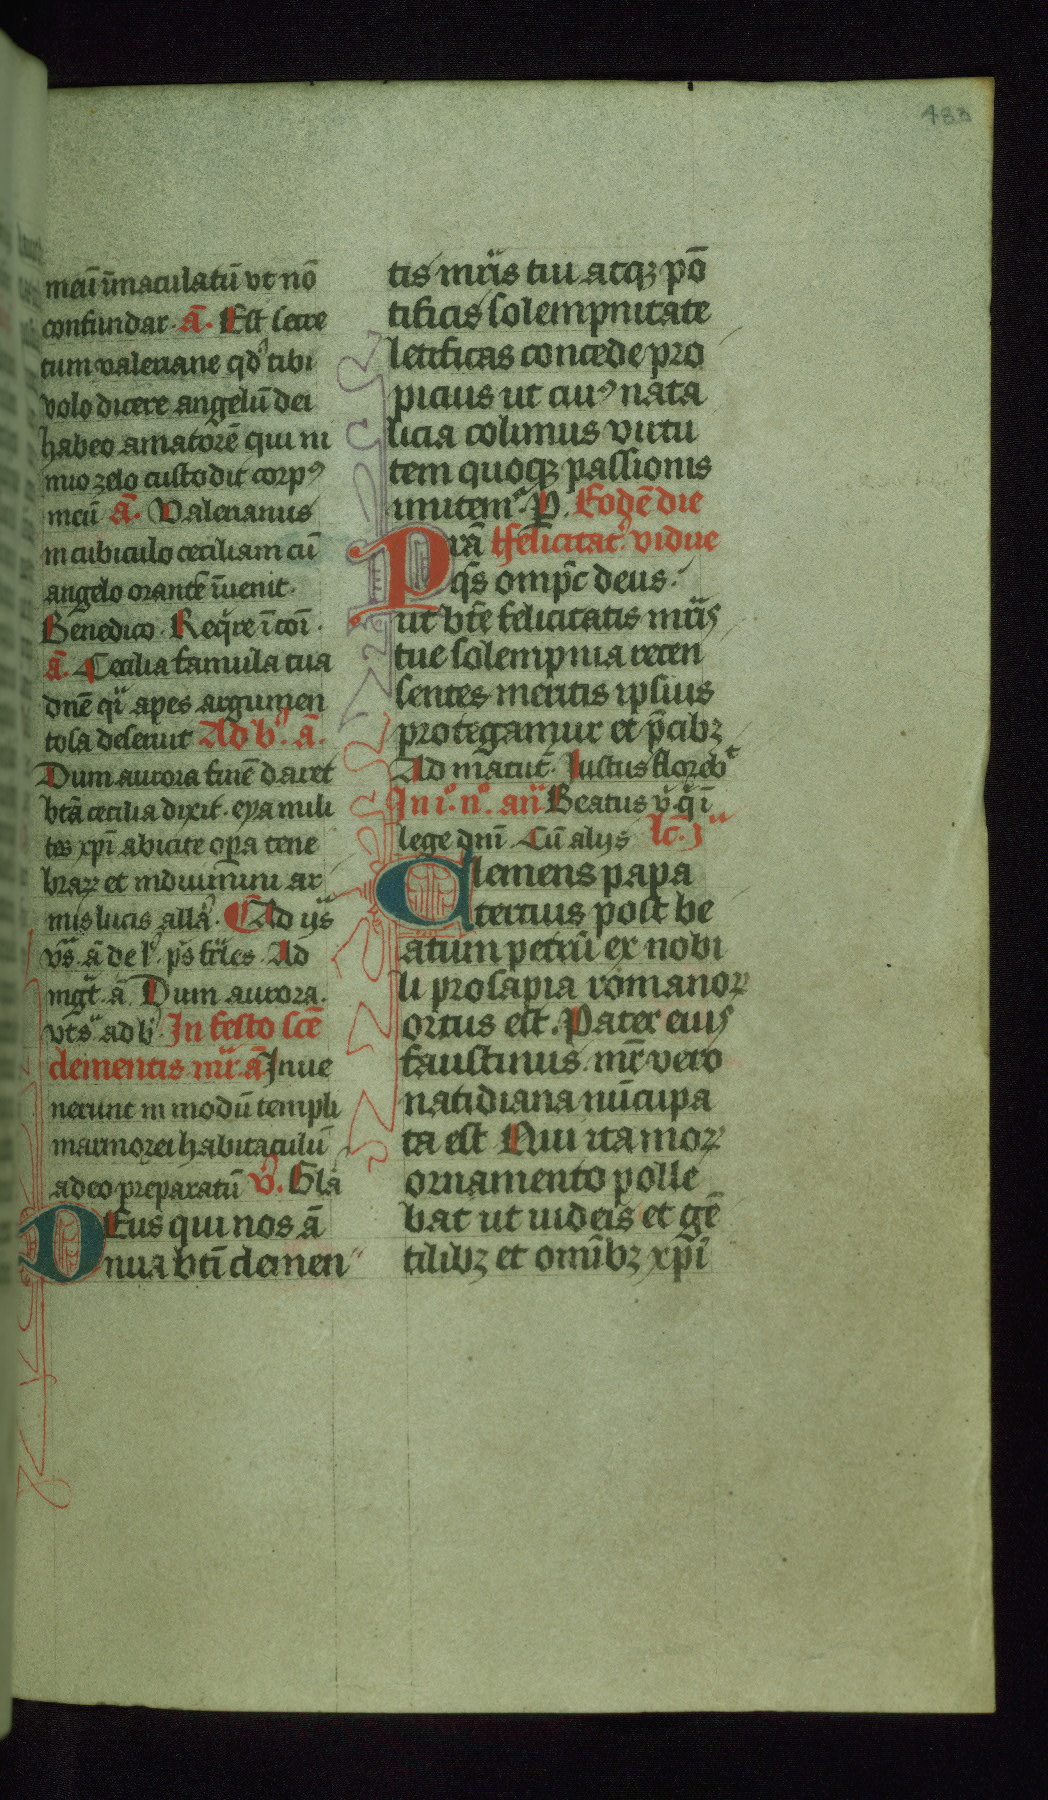 433
meū īmaculatū vt nō
confundar. ā. Est secre
tum valeriane qd tibi
volo dicere angelū dei
habeo amatorē qui ni
mio zelo custodit corpꝰ
meū ā. Valerianus
in cubiculo ceciliam cū
angelo orantē īuenit.
Benedico. Reqͥre ī coī.
ā. Cecilia famula tua
dnē qͣi apes argumen
tosa deseruit Ad b. ā.
Dum aurora finē daret
btā cecilia dixit. eya mili
tes xpī abicite opa tene
braꝝ et induimini ar
mis lucis allā. Ad ijs
vs. ā de l. ps frles. Ad
mgt. ā. Dum aurora.
vts ad b. In festo scē
clementis mr. ā Inue
nerunt in modū templi
marmorei habitaculū
adeo preparatū v. Gla
DEus qui nos ā
nua bti clemen
tis mris tui atqꝫ pō
tificis solempnitate
letificas concede pro
picius ut cuiꝰ nata
licia colimus virtu
tem quoqꝫ passionis
imitem. P. Eodē die
Prā felicitat. vidue
qs omps deus.
ut btē felicitatis mris
tue solempnia recen
sentes meritis ipsius
protegamur et pcibꝫ
Ad matut. Iustus floreb
In i. n. an Beatus v. qi ī
lege dnī. Cū alijs lc. j
Clemens papa
tertius post be
atum petrū ex nobi
li prosapia romanoꝝ
ortus est. Pater eius
faustinus. mr vero
matidiana nūcupa
ta est Qui ita moꝝ
ornamento polle
bat ut iudeis et gē
tilibꝫ et omībꝫ xpī